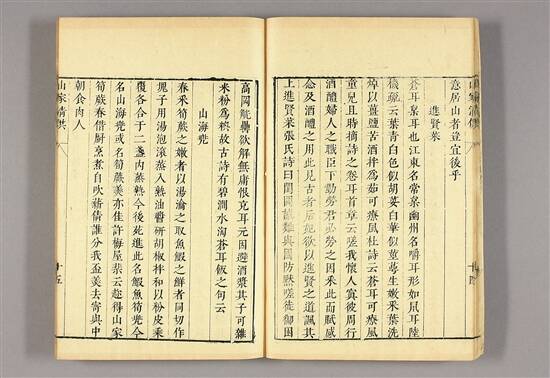 意居山者豈宜後乎
進賢菜
蒼耳枲耳也江東名常枲幽州名嚼耳形如鼠耳陸
機疏云葉青白色似胡荽白華似莖蔓生嫩采葉洗
焯以薑鹽苦酒拌為茹可療風杜詩云蒼耳可療風
童兒且時摘詩之卷耳首章云嗟我懷人寘彼周行
酒醴婦人之職臣下勤勞君必勞之因采此而賦感
念及酒醴之用此見古者后妃欲以進賢之道諷其
上進賢菜張氏詩曰閨閫誠難與國防默嗟徒御困
高岡觥罍欲解無庸恨充耳元因避酒漿其子可雜
米粉為糗故古詩有碧澗水淘蒼耳飯之句云
山海兜
春采筍蕨之嫩者以湯瀹之取魚蝦之鮮者同切作
塊子用湯泡滾蒸入熟油醬研胡椒拌和以粉皮乘
覆各合于二盞內蒸熟今後苑進此名蝦魚筍兜今
名山海兜或名筍蕨羹亦佳許梅屋棐云趁得山家
筍蕨春借廚烹煮自吹薪倩誰分我盃羹去寄與中
朝食肉人
山家清供 十五